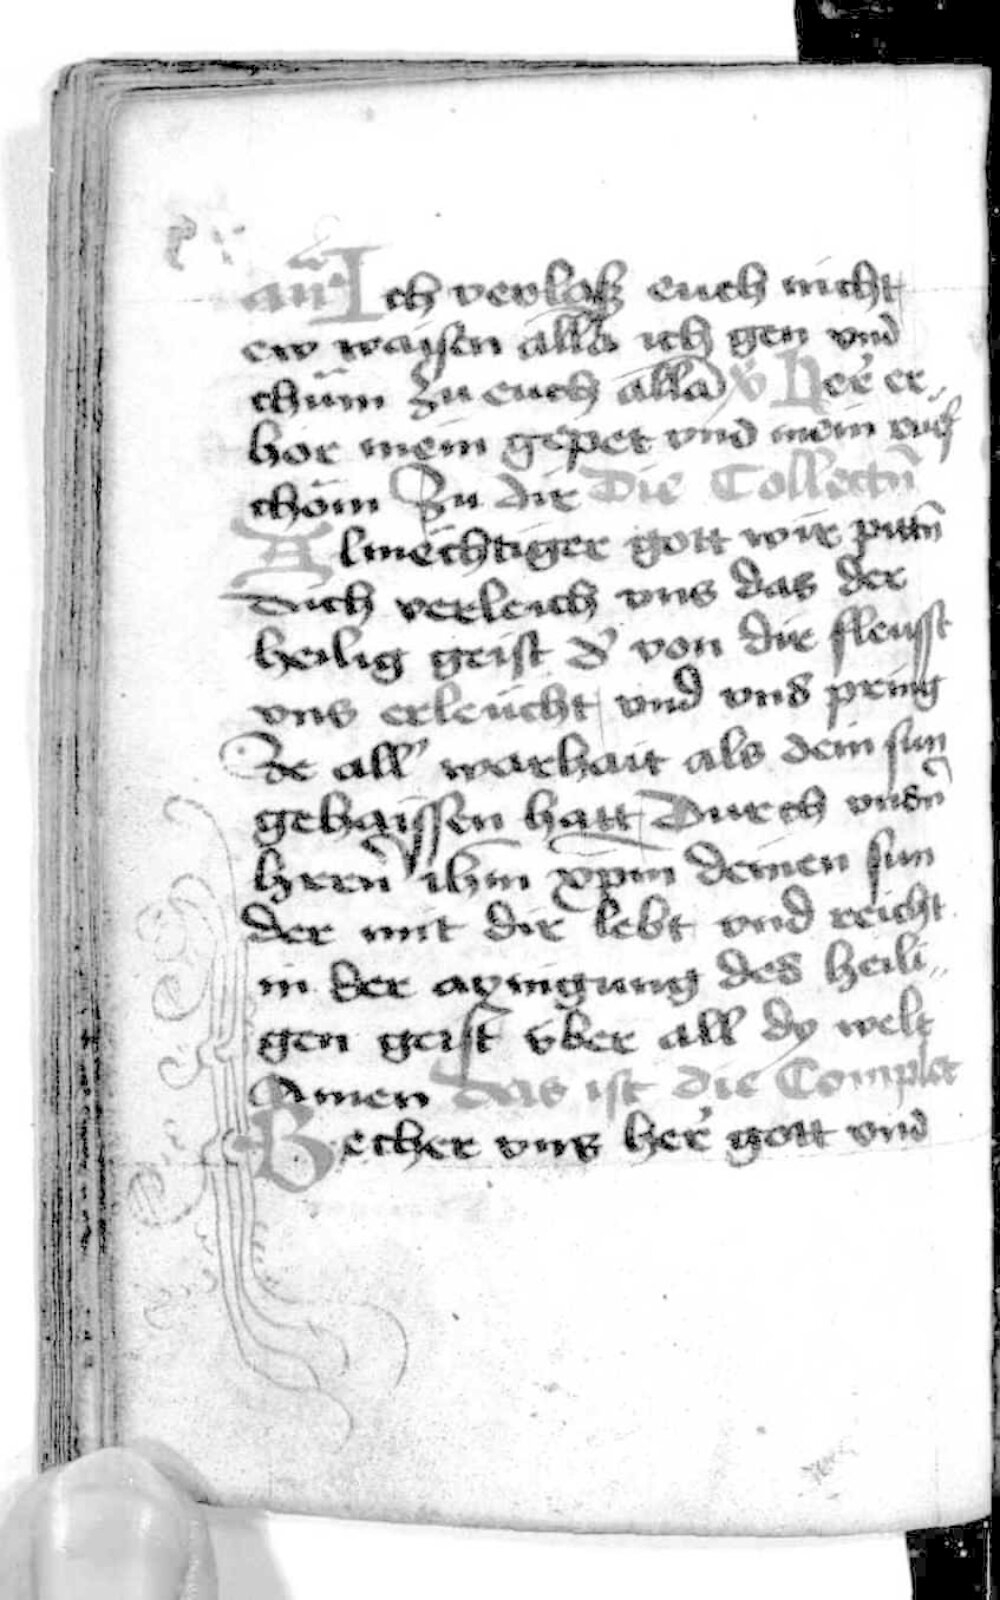 an̄ Ich verlaß euch nicht
ew waysen alla ich gen vnd
chüm zu euch alla v̊ Her̄ er„
hör mein gepet vnd mein ruef
chöm Zu dir Die Collectn̄
Almechtiger gott wir pittn̄
dich verleich vns das der
heilig geist d' von dir fleusst
vns erleücht vnd vns pring
Ze all' warhait als dein sun
gehaissen hatt Durch vnsn̄
hrrn̄ ihm xpm deinen sun
der mit dir lebt vnd reicht
in der aynigung des heili„
gen geist vber all dy welt
Amen Das ist die Complet
Becher vns her̄ gott vnd